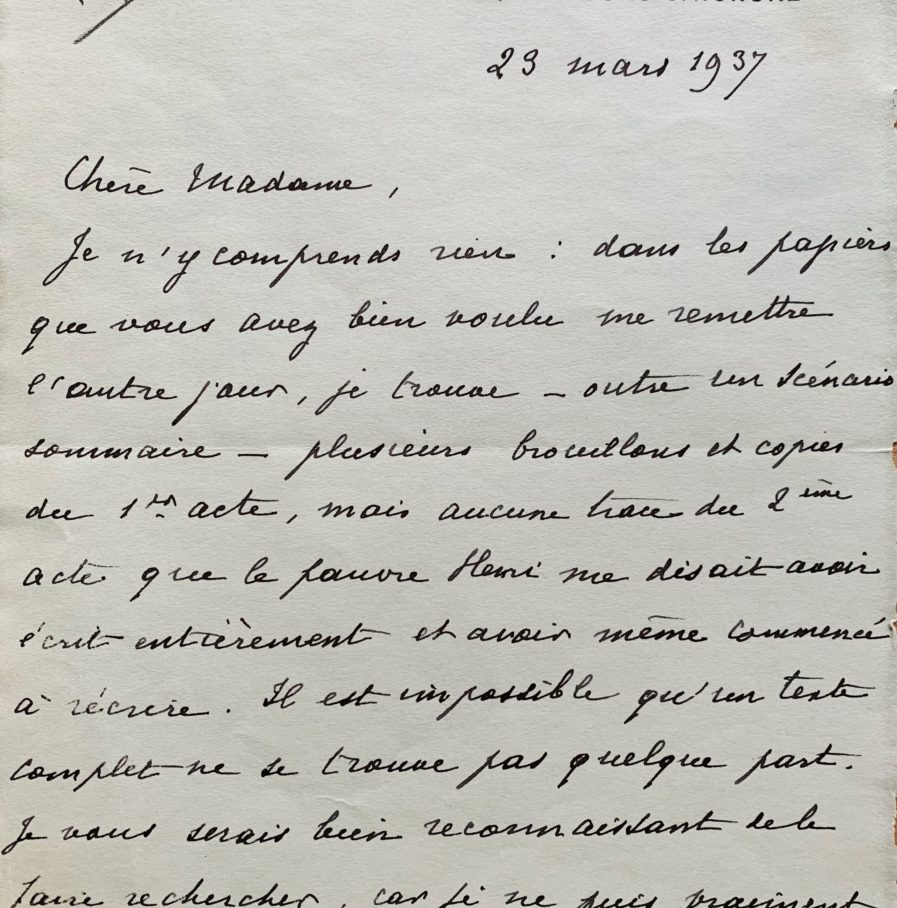 23 mars 1937
Chère Madame,
Je n'y comprends rien : dans les papiers
que vous avez bien voulu me remettre
l'autre jour, je trouve – outre un scénario
sommaire – plusieurs brouillons et copies
du 1er acte, mais aucune trace du 2ème
acte que le pauvre Henri me disait avoir
écrit entièrement et avoir même commencé
à récrire. Il est impossible qu'un texte
complet ne se trouve pas quelque part.
Je vous serais bien reconnaissant de le
faire rechercher, car je ne puis vraiment